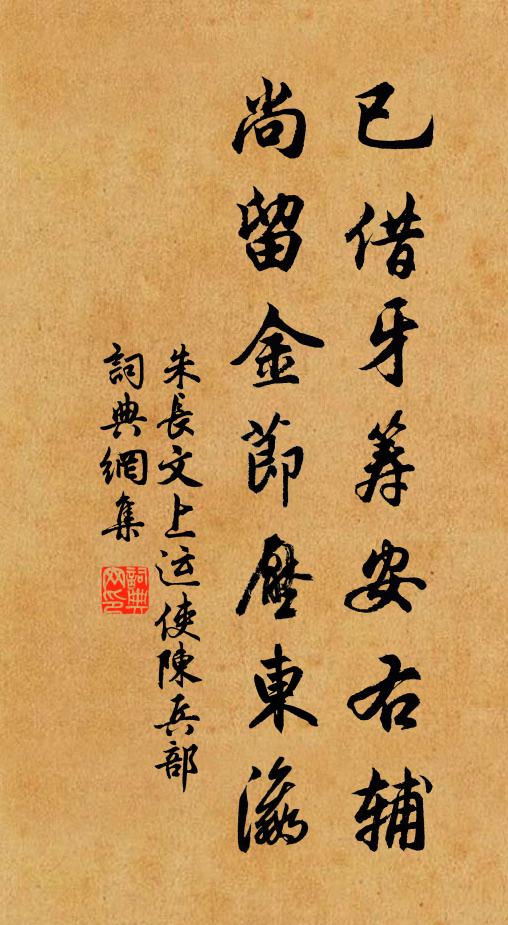 已借牙筹安右辅
尚留金節壓東瀛
朱長文上运使陳兵部
詞典網集
詞典网印